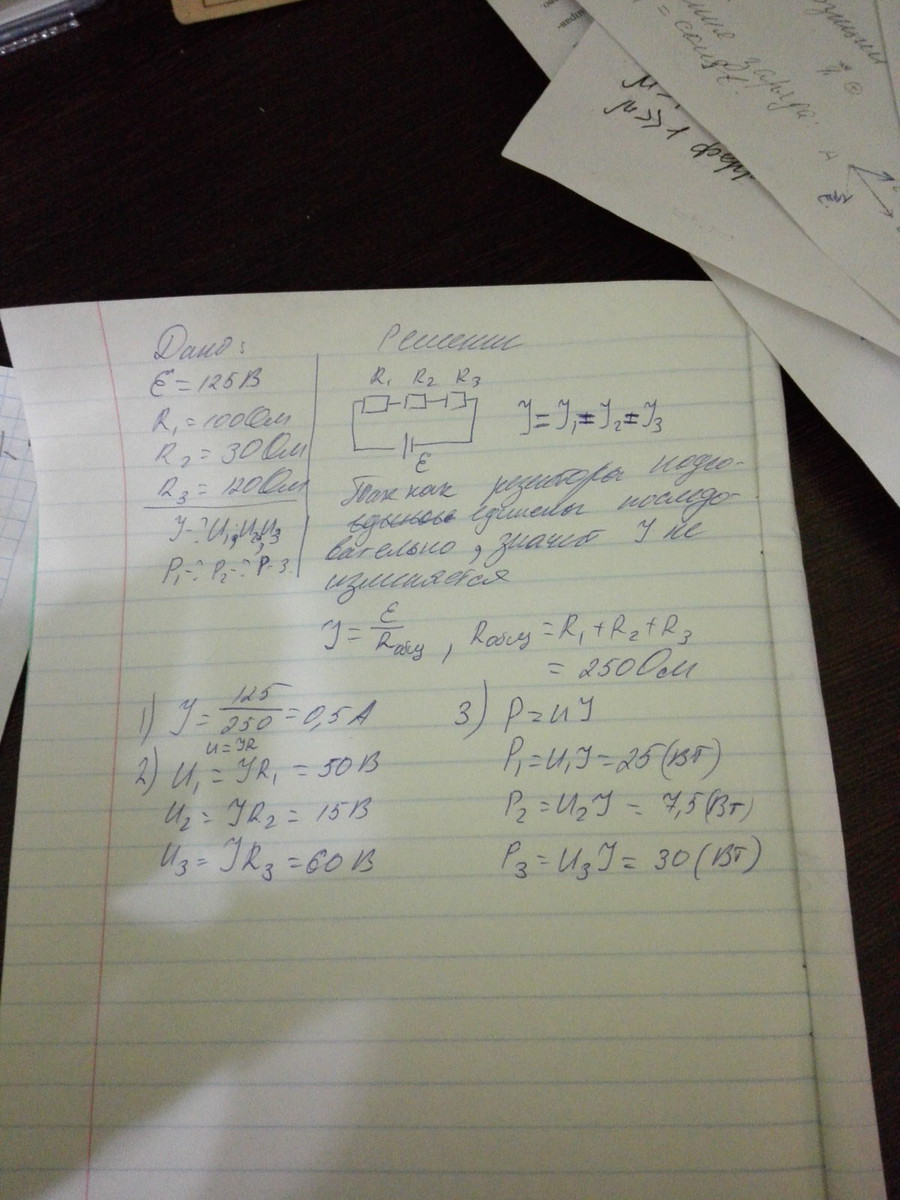 Дано:
Ɛ = 125 В
R₁ = 100 Ом
R₂ = 30 Ом
R₃ = 120 Ом
I - ? U₁, U₂, U₃
P₁ - ? P₂ - ? P - 3.
Решении
R₁ R₂ R₃
Ɛ
I = I₁ = I₂ = I₃
Так как резисторы подсо-
единены последо-
вательно, значит I не
изменяется
I = Ɛ / Rобщ , Rобщ = R₁ + R₂ + R₃
= 250 Ом
1) I = 125 / 250 = 0,5 А
u = IR
2) U₁ = IR₁ = 50 В
U₂ = IR₂ = 15 В
U₃ = IR₃ = 60 В
3) P = UI
P₁ = U₁I = 25 (Вт)
P₂ = U₂I = 7,5 (Вт)
P₃ = U₃I = 30 (Вт)
заряда:
= const.
μ >> 1